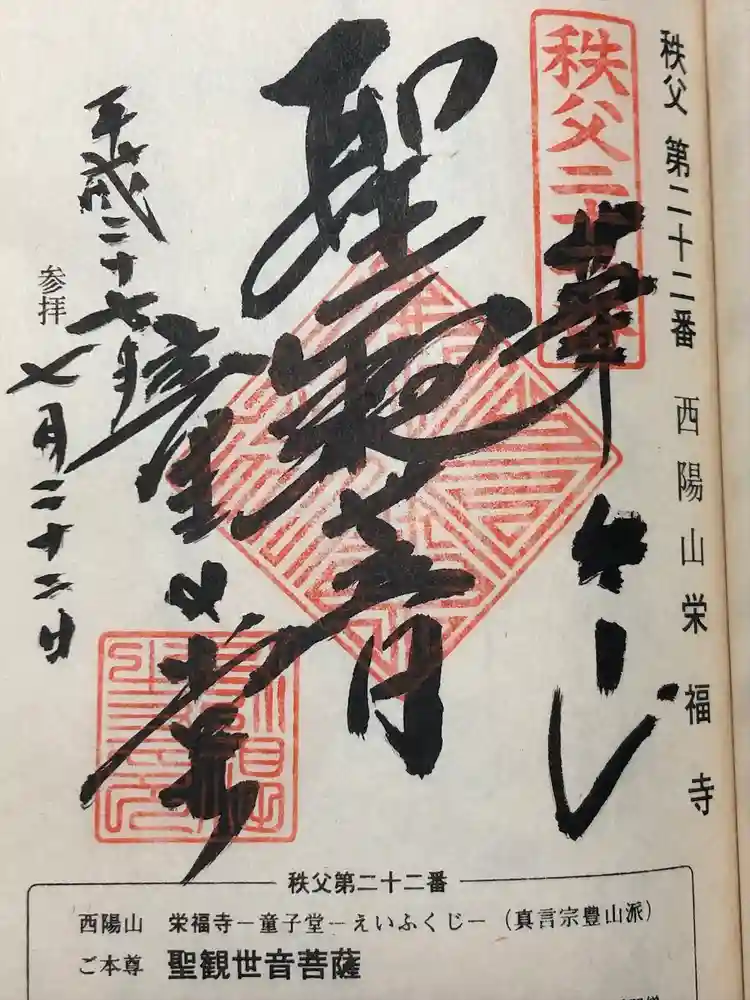 秩父 第二十二番 西陽山栄福寺
秩父二十二番
奉拝
聖観音
童子堂
平成二十七年
七月二十二日
参拝
秩父第二十二番
西陽山 栄福寺−童子堂−えいふくじ−(真言宗豊山派)
ご本尊 聖観世音菩薩